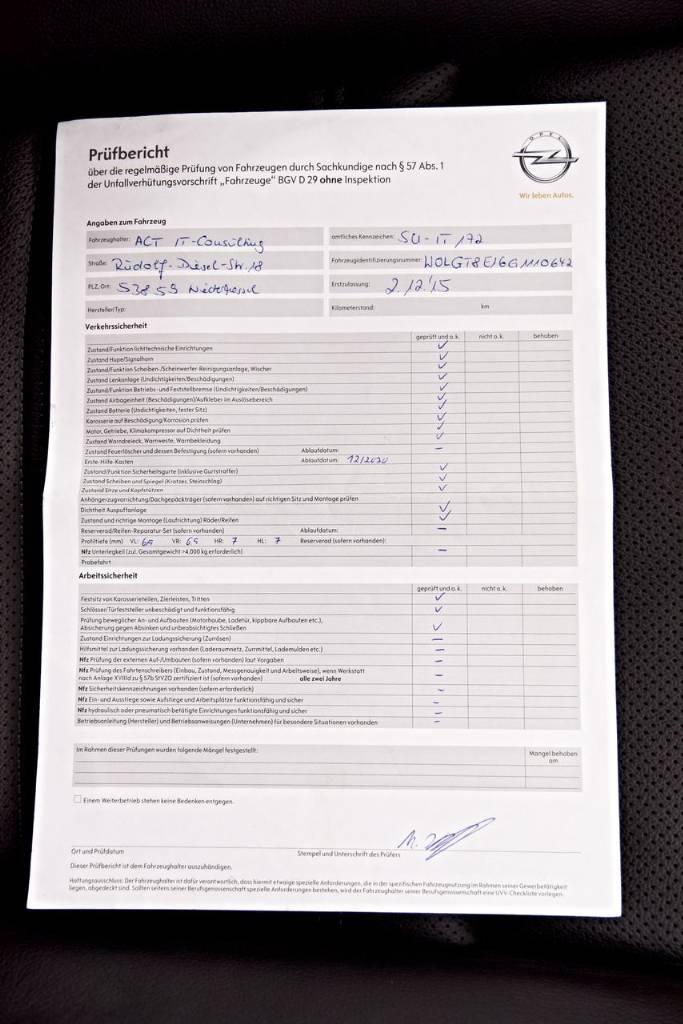 Prüfbericht
über die regelmäßige Prüfung von Fahrzeugen durch Sachkundige nach § 57 Abs. 1
der Unfallverhütungsvorschrift „Fahrzeuge" BGV D 29 ohne Inspektion
OPEL
Wir leben Autos.
Angaben zum Fahrzeug
Fahrzeughalter: ACT IT-Consulting
amtliches Kennzeichen: SU-IT 172
Straße: Rudolf-Diesel-Str. 18
Fahrzeugidentifizierungsnummer: W0LGT8E16G1110642
PLZ, Ort: 53859
Erstzulassung: 2.12.'15
Hersteller/Typ:
Kilometerstand: km
Verkehrssicherheit
geprüft und o.k. nicht o.k. behoben
Zustand/Funktion lichttechnische Einrichtungen
Zustand Hupe/Signalhorn
Zustand/Funktion Scheiben-/Scheinwerfer-Reinigungsanlage, Wischer
Zustand Lenkanlage (Undichtigkeiten/Beschädigungen)
Zustand/Funktion Betriebs- und Feststellbremse (Undichtigkeiten/Beschädigungen)
Zustand Airbageinheit (Beschädigungen)/Aufkleber im Auslösebereich
Zustand Batterie (Undichtigkeiten, fester Sitz)
Karosserie auf Beschädigung/Korrosion prüfen
Motor, Getriebe, Klimakompressor auf Dichtheit prüfen
Zustand Warndreieck, Warnweste, Warnbekleidung
Zustand Feuerlöscher und dessen Befestigung (sofern vorhanden) Ablaufdatum: –
Erste-Hilfe-Kasten Ablaufdatum: 12/2020
Zustand/Funktion Sicherheitsgurte (inklusive Gurtstraffer)
Zustand Scheiben und Spiegel (Kratzer, Steinschlag)
Zustand Sitze und Kopfstützen
Anhängerzugvorrichtung/Dachgepäckträger (sofern vorhanden) auf richtigen Sitz und Montage prüfen
Dichtheit Auspuffanlage
Zustand und richtige Montage (Laufrichtung) Räder/Reifen
Reserverad/Reifen-Reparatur-Set (sofern vorhanden) Ablaufdatum: –
Profiltiefe (mm) VL: 6,5 VR: 6,5 HR: 7 HL: 7 Reserverad (sofern vorhanden):
Nfz Unterlegkeil (zul. Gesamtgewicht >4.000 kg erforderlich) –
Probefahrt
Arbeitssicherheit
geprüft und o.k. nicht o.k. behoben
Festsitz von Karosserieteilen, Zierleisten, Tritten
Schlösser/Türfeststeller unbeschädigt und funktionsfähig
Prüfung beweglicher An- und Aufbauten (Motorhaube, Ladetür, kippbare Aufbauten etc.),
Absicherung gegen Absinken und unbeabsichtigtes Schließen
Zustand Einrichtungen zur Ladungssicherung (Zurrösen) –
Hilfsmittel zur Ladungssicherung vorhanden (Laderaumnetz, Zurrmittel, Lademulden etc.) –
Nfz Prüfung der externen Auf-/Umbauten (sofern vorhanden) laut Vorgaben –
Nfz Prüfung des Fahrtenschreibers (Einbau, Zustand, Messgenauigkeit und Arbeitsweise), wenn Werkstatt
nach Anlage XVIIId zu § 57b StVZO zertifiziert ist (sofern vorhanden) alle zwei Jahre –
Nfz Sicherheitskennzeichnungen vorhanden (sofern erforderlich) –
Nfz Ein- und Ausstiege sowie Aufstiege und Arbeitsplätze funktionsfähig und sicher –
Nfz hydraulisch oder pneumatisch betätigte Einrichtungen funktionsfähig und sicher –
Betriebsanleitung (Hersteller) und Betriebsanweisungen (Unternehmen) für besondere Situationen vorhanden –
Im Rahmen dieser Prüfungen wurden folgende Mängel festgestellt:
Mängel behoben
am
Einem Weiterbetrieb stehen keine Bedenken entgegen.
Ort und Prüfdatum
Stempel und Unterschrift des Prüfers
Dieser Prüfbericht ist dem Fahrzeughalter auszuhändigen.
Haftungsausschluss: Der Fahrzeughalter ist dafür verantwortlich, dass hiermit etwaige spezielle Anforderungen, die in der spezifischen Fahrzeugnutzung im Rahmen seiner Gewerbetätigkeit
liegen, abgedeckt sind. Sollten seitens seiner Berufsgenossenschaft spezielle Anforderungen bestehen, wird der Fahrzeughalter seiner Berufsgenossenschaft eine UVV-Checkliste vorlegen.